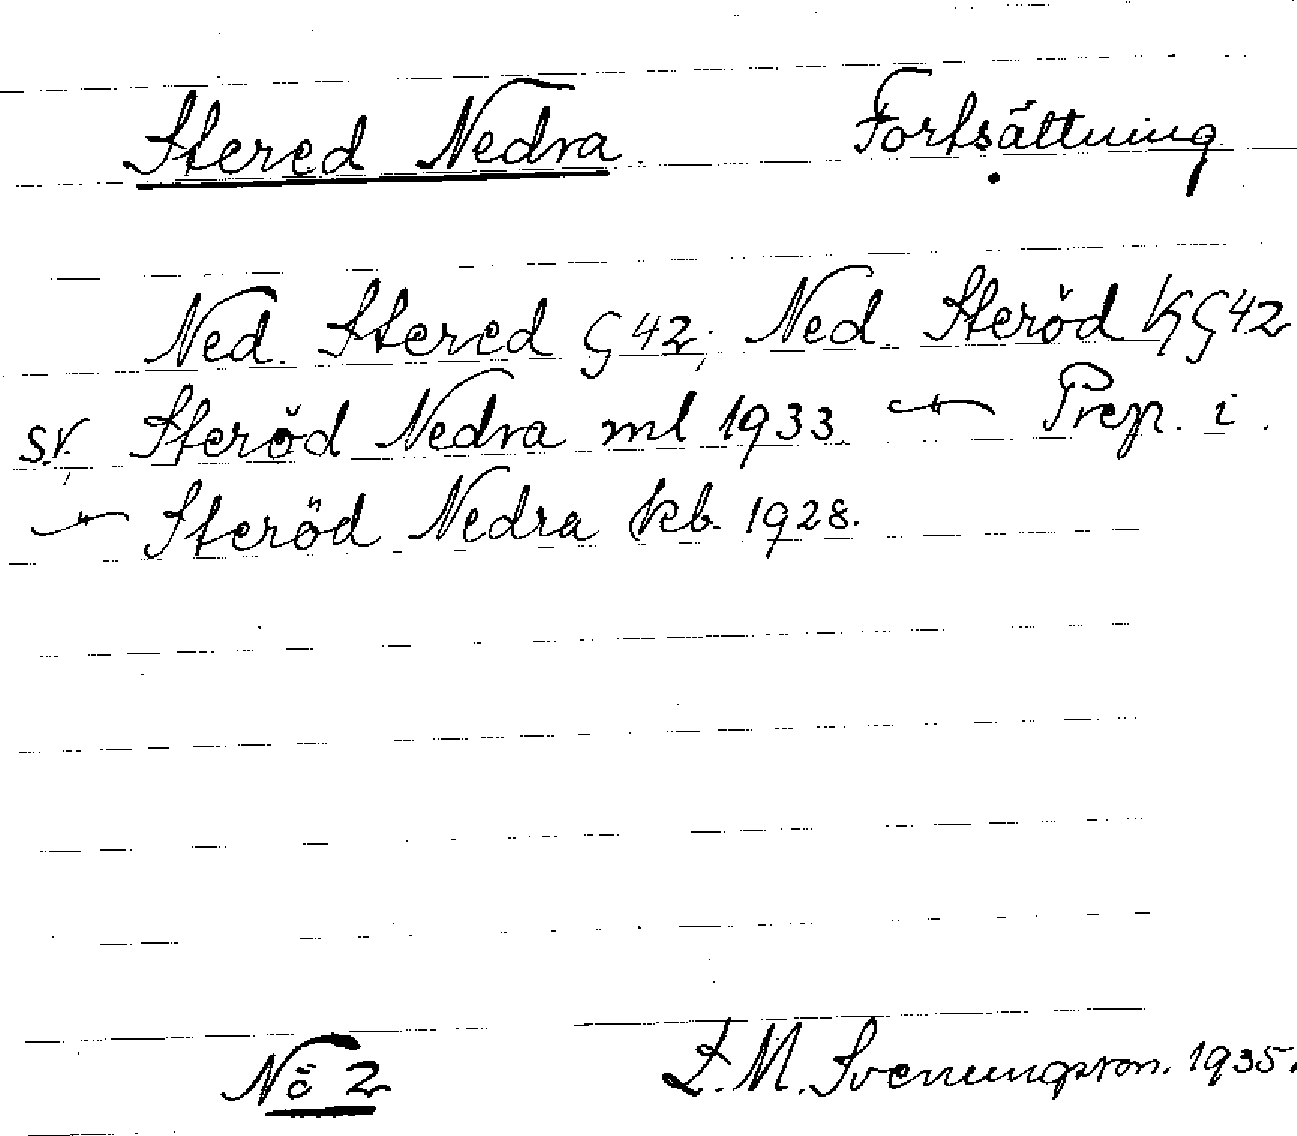 Stered Nedra Fortsättning
Ned. Stered G 42; Ned. Steröd KG 42
sv.; Steröd Nedra ml 1933. — Prep. i.
— Steröd Nedra kb 1928.
No 2 L. M. Svenungsson. 1935.